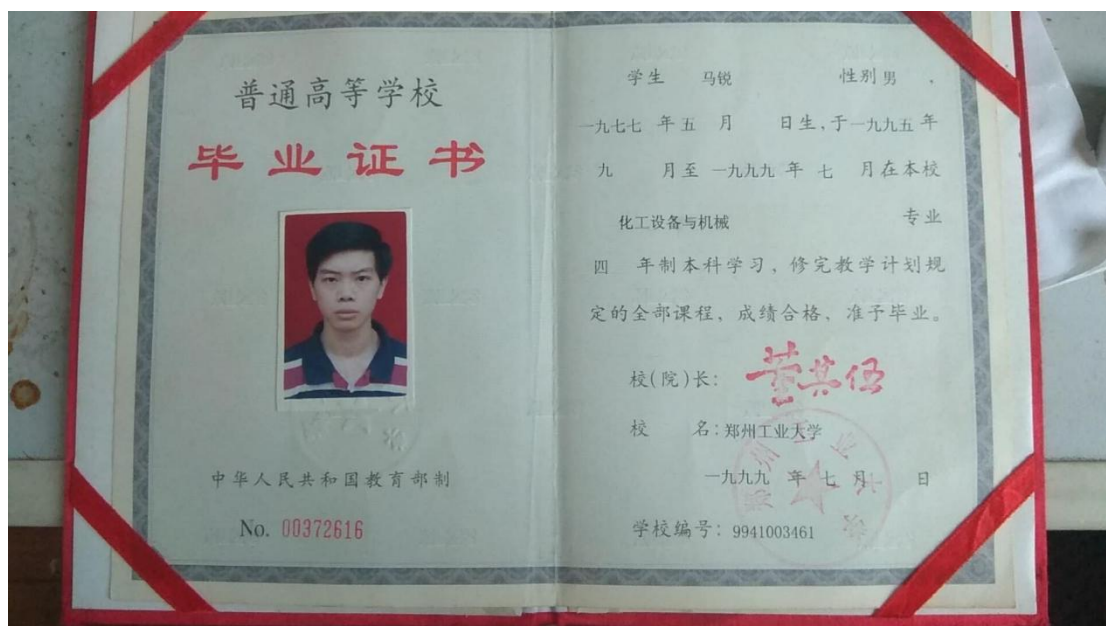 普通高等学校
毕业证书
中华人民共和国教育部制
No. 00372616
学生 马锐 性别 男 ,
一九七七 年 五 月 日生,于一九九五 年
九 月至 一九九九 年 七 月在本校
化工设备与机械 专业
四 年制本科学习,修完教学计划规
定的全部课程,成绩合格,准予毕业。
校(院)长:
校 名:郑州工业大学
一九九九 年 七 月 日
学校编号:9941003461